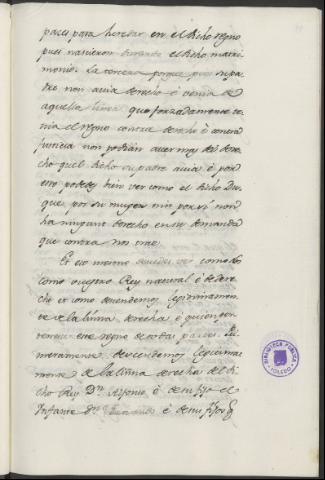 paces para heredar en el dicho regno
pues nasieron durante el dicho matri
monio. La tercera porque pues su pa
dre non avia derecho è venia de
aquella linea que forzadamente te
nia el regno contra derecho è contra
justicia non podian aver mas del dere
cho quel dicho su padre avia è por
esto podedes bien ver como el dicho Du
que por su muger nin por si non
ha ningunt derecho en su demanda
que contra nos trae.
Et eso mesmo devedes ver como
como vuestro Rey natural è de dere
cho et como descendemos legitimamen
te de la linna derecha è quien per
tenesce este regno de todas partes. Pri
meramente descendemos legitima
mente de la linna derecha del di
cho Rey Dn. Alfonso è de su fijo el
Infante dn. Fernando è de su fijo
BIBLIOTECA PUBLICA
TOLEDO